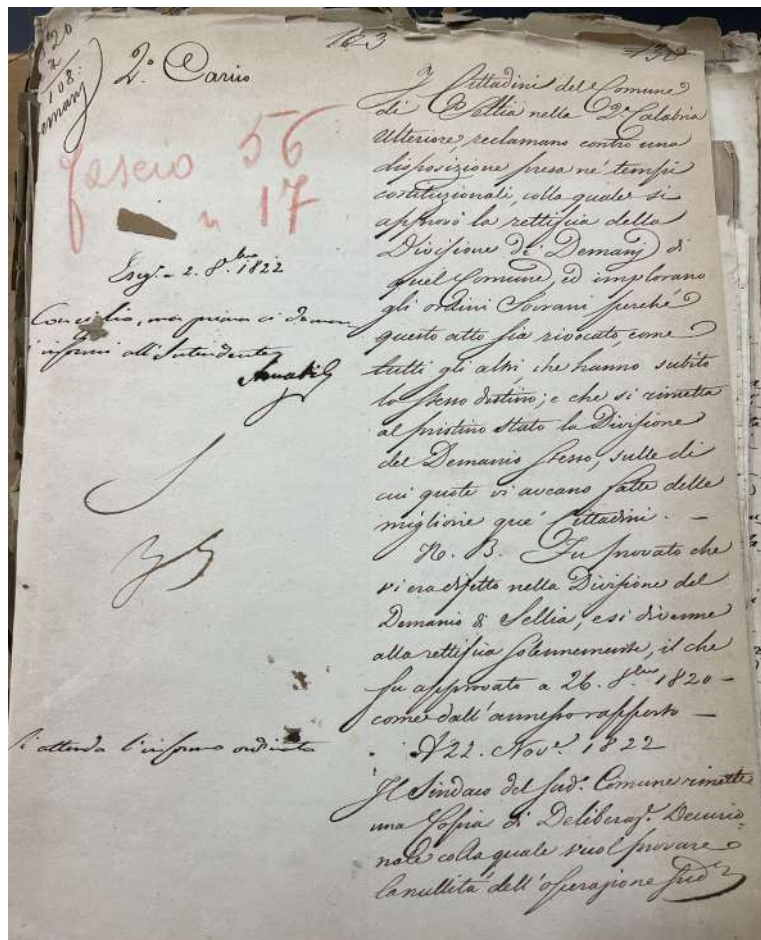 123
138
20
2
108:
2.º Carico
fascio 56
n 17
2. 8.bre 1822
Concilio, ma prima ci
informi all'Intendente
Si attenda l'informo ordinato
I Cittadini del Comune
di Sellia nella 2.ª Calabria
Ulteriore, reclamano contro una
disposizione presa ne' tempi
costituzionali, colla quale si
approvò la rettifica della
Divisione de' Demanj di
quel Comune, ed implorano
gli ordini Sovrani perchè
questo atto sia rivocato, come
tutti gli altri, che hanno subito
lo stesso destino; e che si rimetta
al pristino stato la Divisione
del Demanio stesso, sulle di
cui quote vi aveano fatte delle
migliorie que' Cittadini. —
N. B. Fu provato che
vi era difetto nella Divisione del
Demanio di Sellia, e si divenne
alla rettifica solennemente, il che
fu approvato a 26. 8.bre 1820 —
come dall'annesso rapporto —
A 22. Nov.e 1822
Il Sindaco del sud.o Comune rimette
una Copia di Deliberaz.e Decurio
nale colla quale vuol provare
la nullità dell'operazione sud.a